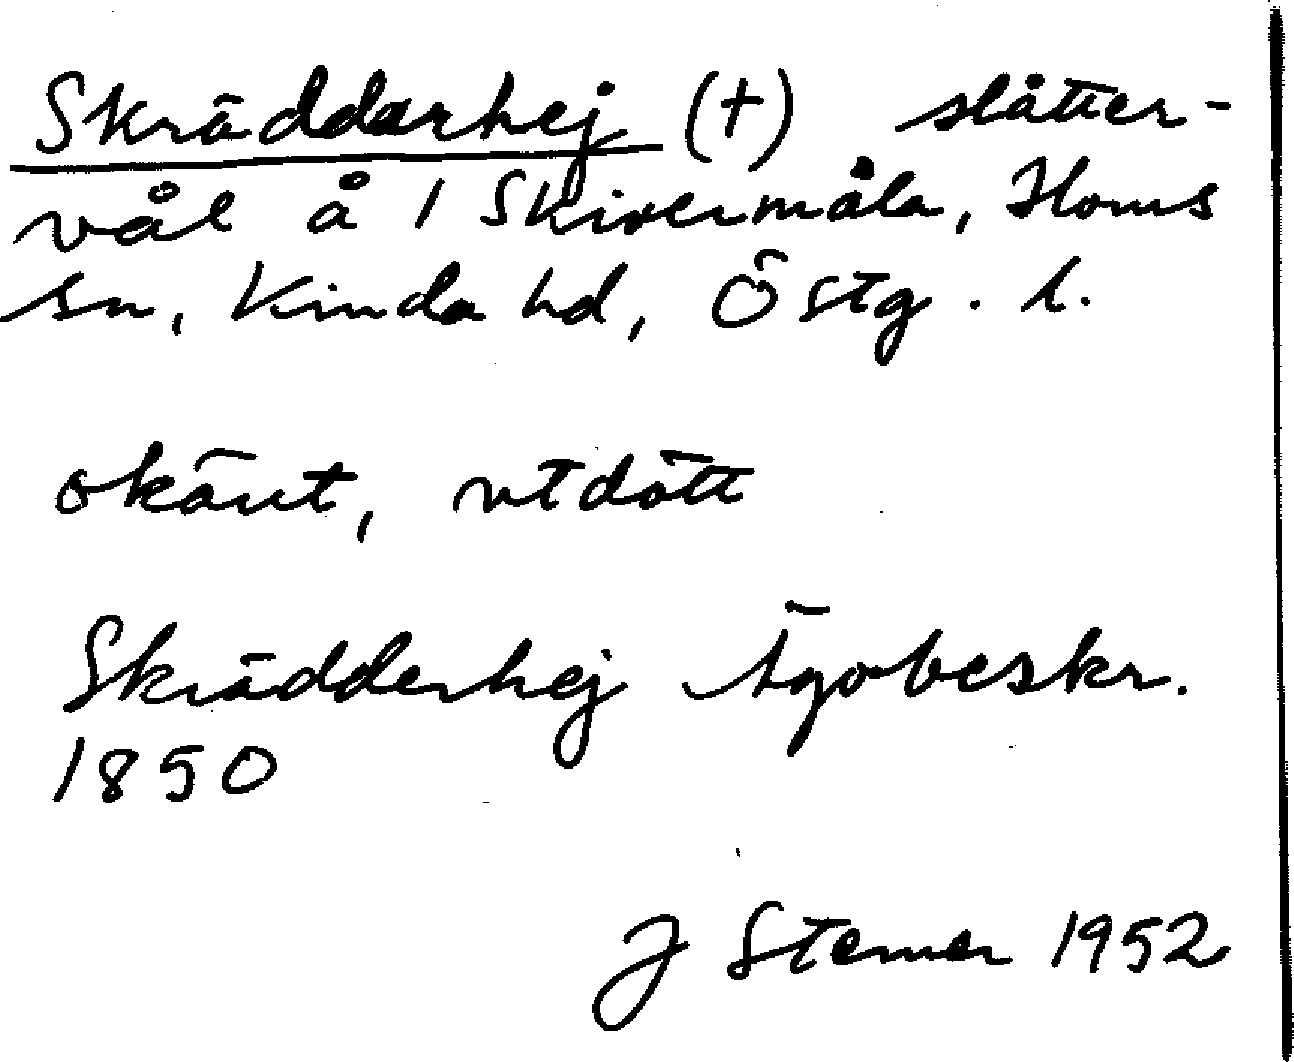 Skräddarhej (+) slåtter-
vål å 1 Skivermåla, Horns
sn, Kinda hd, Östg. l.
okänt, utdött
Skrädderhej Ägobeskr.
1850
J Sterner 1952